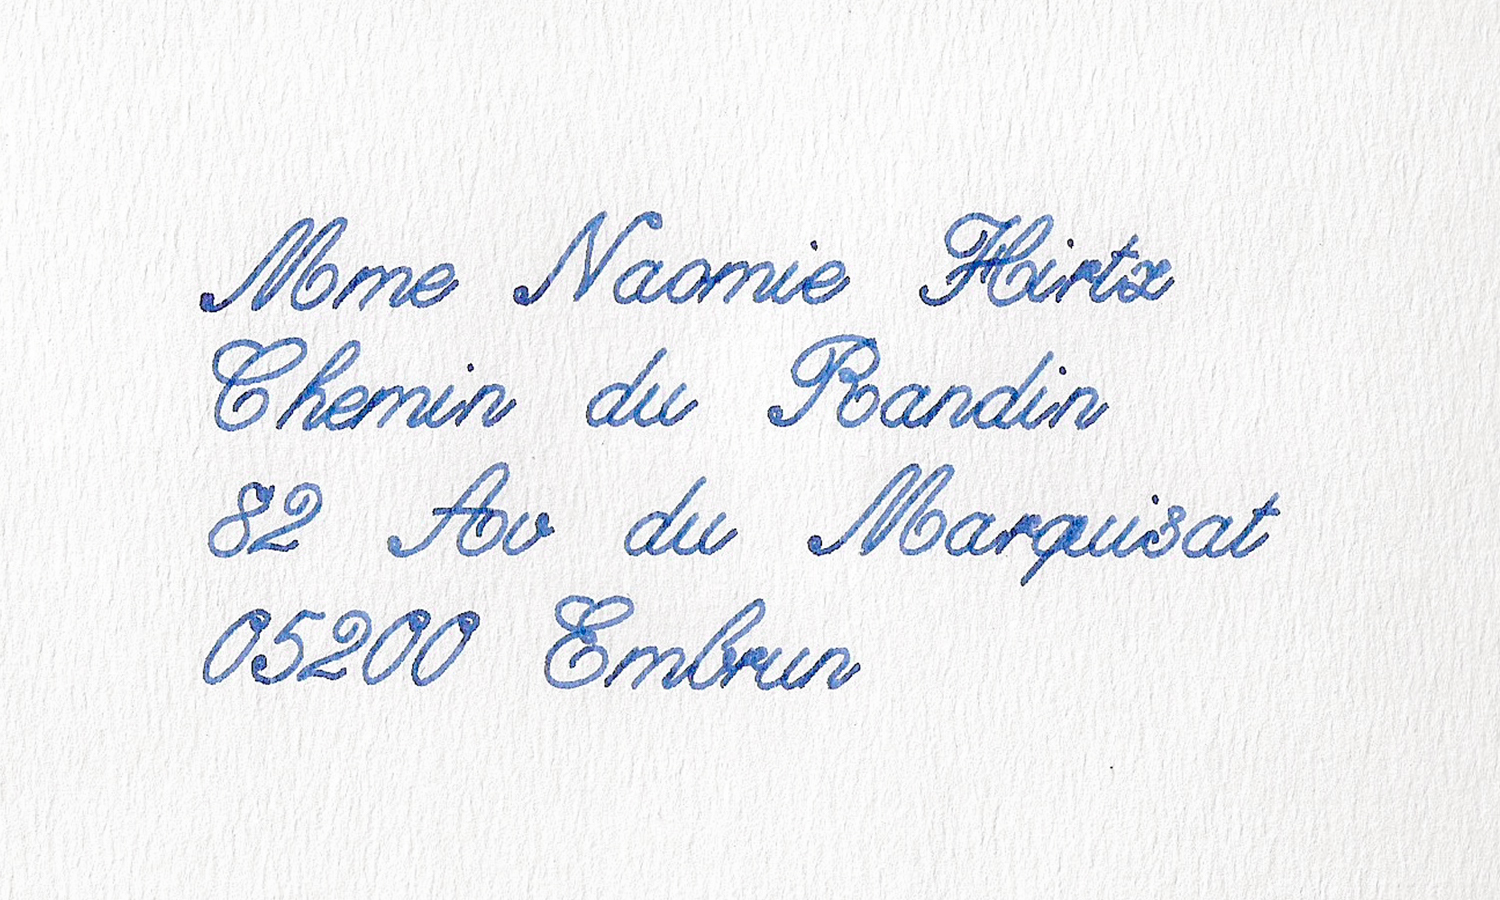 Mme Naomie Hirtz
Chemin du Randin
82 Av du Marquisat
05200 Embrun